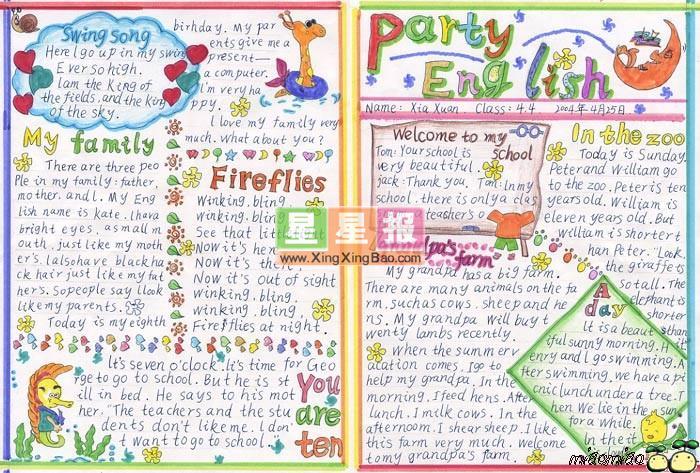 Swing song
Here I go up in my swing
Ever so high.
I am the King of
the fields, and the king
of the sky.
My family
There are three peo
ple in my family: father,
mother, and I. My Eng
lish name is Kate. I hava
bright eyes, a small m
outh, just like my moth
er's. I also have black ha
ck hair just like my fat
hers. So people say I look
like my parents.
Today is my eighth
birthday. My par
ents give me a
present—
a computer.
I'm very ha
ppy.
I love my family very
much. What about you?
Fireflies
Winking, bling,
winking, bling.
See that little
Now it's here
Now it's there,
Now it's out of sight
Winking, bling,
winking, bling.
Fireflies at night.
It's seven o'clock. It's time for Geo
rge to go to school. But he is st
ill in bed. He says to his mot
her, "The teachers and the stu
dents don't like me. I don'
t want to go to school."
You
are
ten
Party
English
Name: Xia Xuan. Class: 4.4 2004年4月25日
Welcome to my
school
Tom: Your school is
very beautiful.
jack: Thank you. Tom: In my
school, there is only a clas
teacher's o
pa's farm"
My grandpa has a big farm.
There are many animals on the fa
rm, such as cows, sheep and he
ns. My grandpa will buy t
wenty lambs recently.
When the summer v
acation comes, I go to
help my grandpa. In the
morning, I feed hens. After
lunch, I milk cows. In the
afternoom, I shear sheep. I like
this farm very much. Welcome
to my grandpa's farm.
In the zoo
Today is Sunday.
Peter and William go
to the zoo. Peter is ten
years old. William is
eleven years old. But
William is shorter t
han Peter. "Look,
the giraffe is
so tall. The
elephant is
shorter
than
A
day
It is a beaut
iful sunny morning. H
enry and I go swimming. A
fter swimming, we have a pi
cnic lunch under a tree.
hen we lie in the sun
for a while.
In the
星星报
www.XingXingBao.com
miaomiao